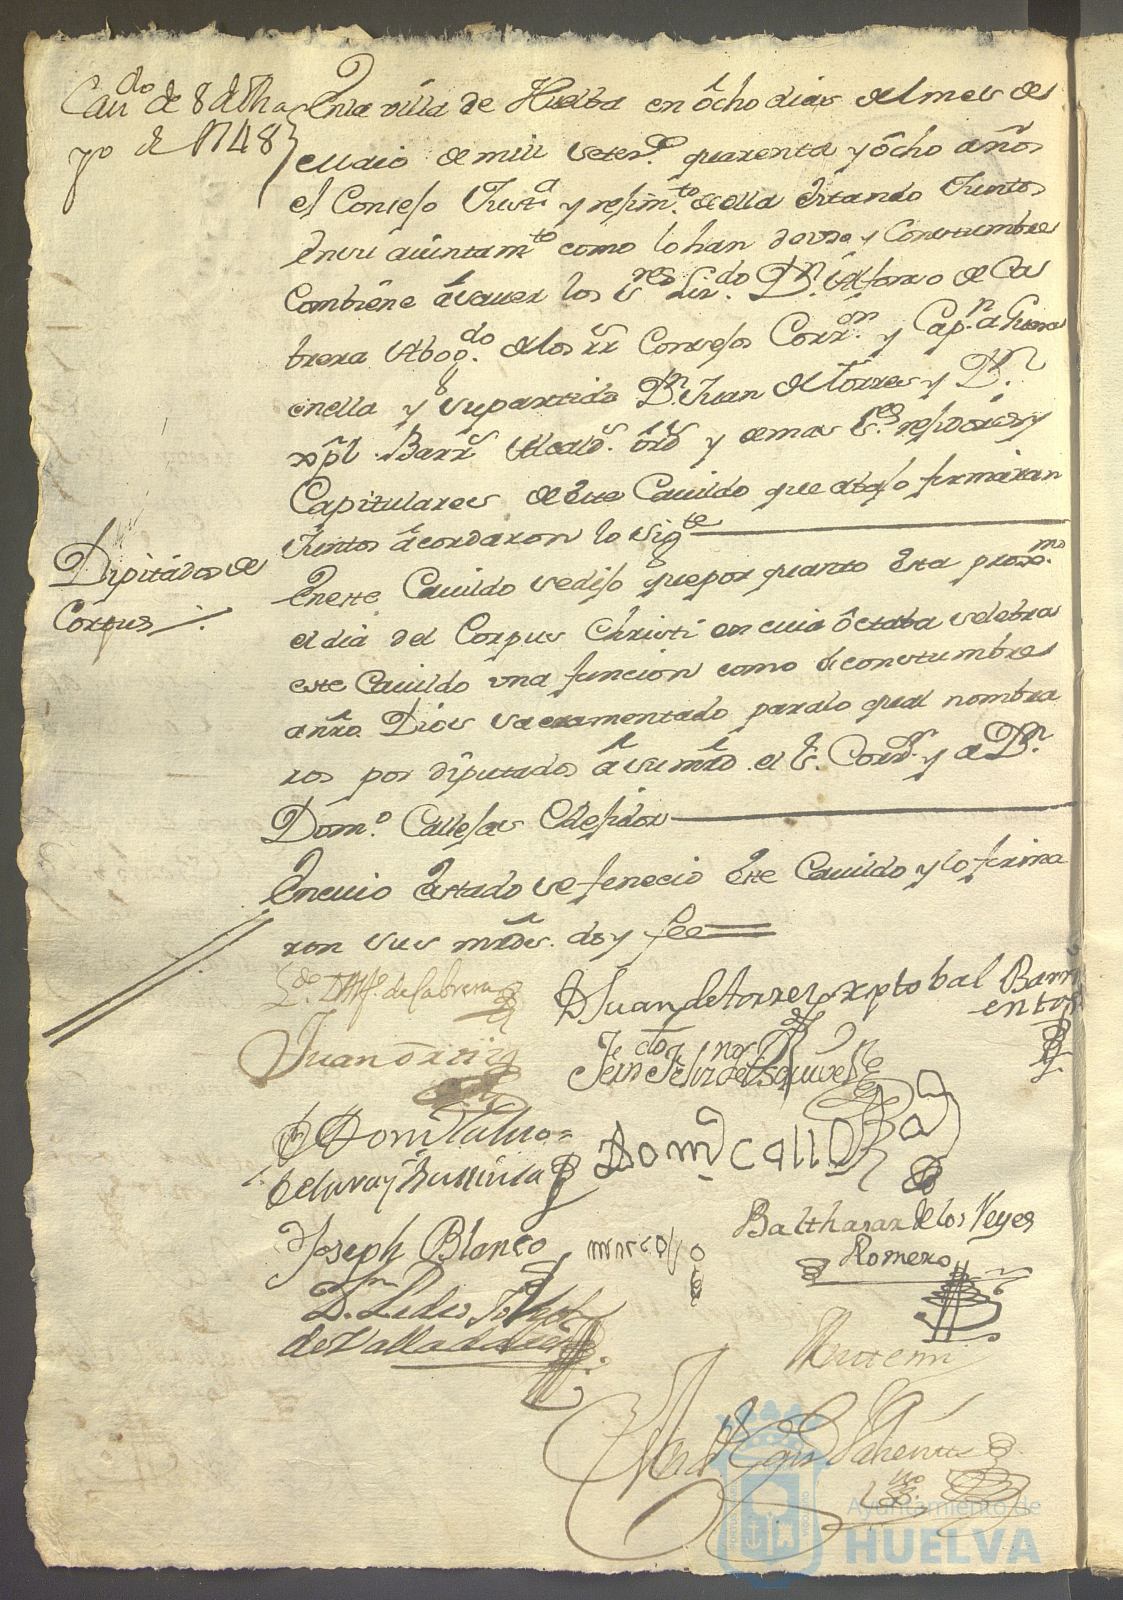 Cavdo de 8 de Ma
yo de 1748
En la villa de Huelba en ôcho dias del mes de
Maio de mill setezs. quarenta y ôcho años
el Consejo Justa y rejimto de ella estando Juntos
en su aiuntamto como lo han de vso y Constumbre
combiene â saver los Sres Lizdo. Dn. Alfonso de Ca
brera Abogdo. de los rs Consejos Corron y Capn. a Guerra
en ella y su partido Dn. Juan de Torres y Dn.
xpl Barrs Alcalds. ôrds y demas Sres. rejidores y
Capitulares de este Cavildo que abajo firmâran
Juntos âcordaron lo sigte
Diputados de
Corpus
En este Cavildo se dijo que por quanto esta proxmo
el dia del Corpus Christi en cuia ôctaba selebra
este Cavildo una funcion como de constumbre
a nro. Dios Sacramentado para lo qual nombra
ron por diputados â su mrd. el Sr. Corrr. y a Dn.
Domo. Callejas Rejidor
En cuio estado se fenecio este Cavildo y lo firma
ron sus mrdes. doy fee
Ldo. D Alfo. de Cabrera
D Juan de torres xptobal Barri
entos
Juan ortiz
de Esquivel
D Domo
Domo calle
Joseph Blanco
Balthasar de los Reyes
Romero
de Valladolid
Ante mi
Ayuntamiento de
HUELVA